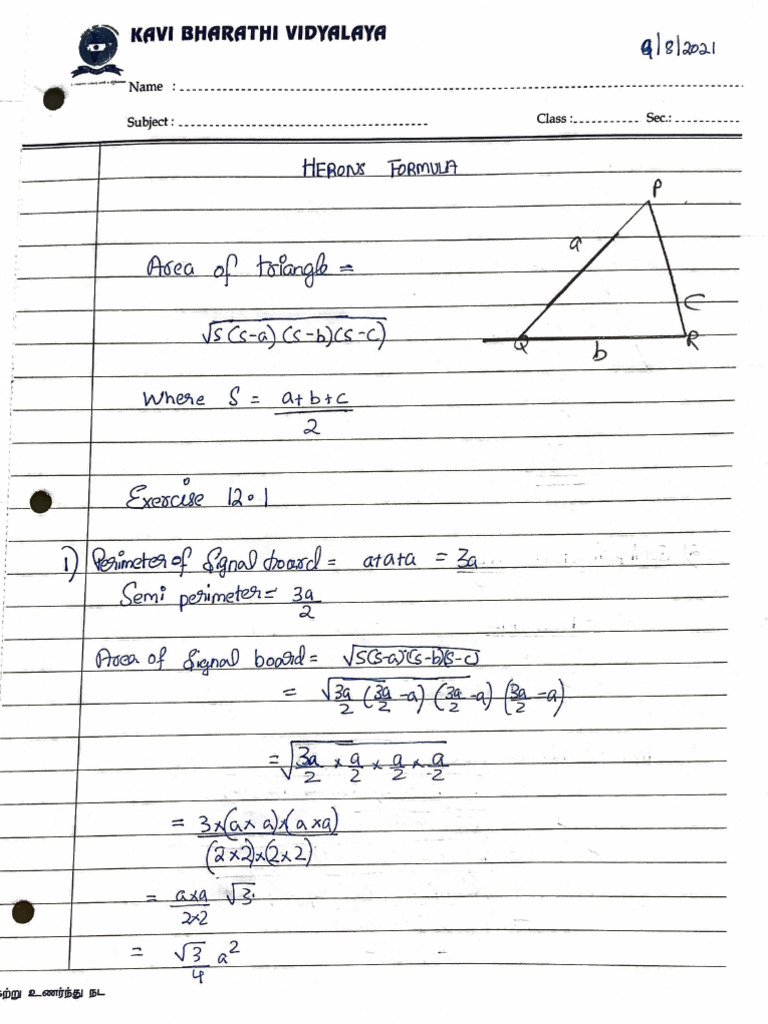 KAVI BHARATHI VIDYALAYA
9/8/2021
Name :
Subject :
Class : Sec.:
HERONS FORMULA
P
a
Area of triangle =
C
√s(s-a)(s-b)(s-c)
Q R
b
Where S = a+b+c/2
Exercise 12.1
1) Perimeter of Signal board = a+a+a = 3a
Semi perimeter = 3a/2
Area of Signal board = √s(s-a)(s-b)(s-c)
= √3a/2 (3a/2 -a) (3a/2 -a) (3a/2 -a)
= √3a/2 × a/2 × a/2 × a/2
= 3×(a×a)×(a×a)/(2×2)×(2×2)
= a×a/2×2 √3
= √3/4 a²
கற்று உணர்ந்து நட